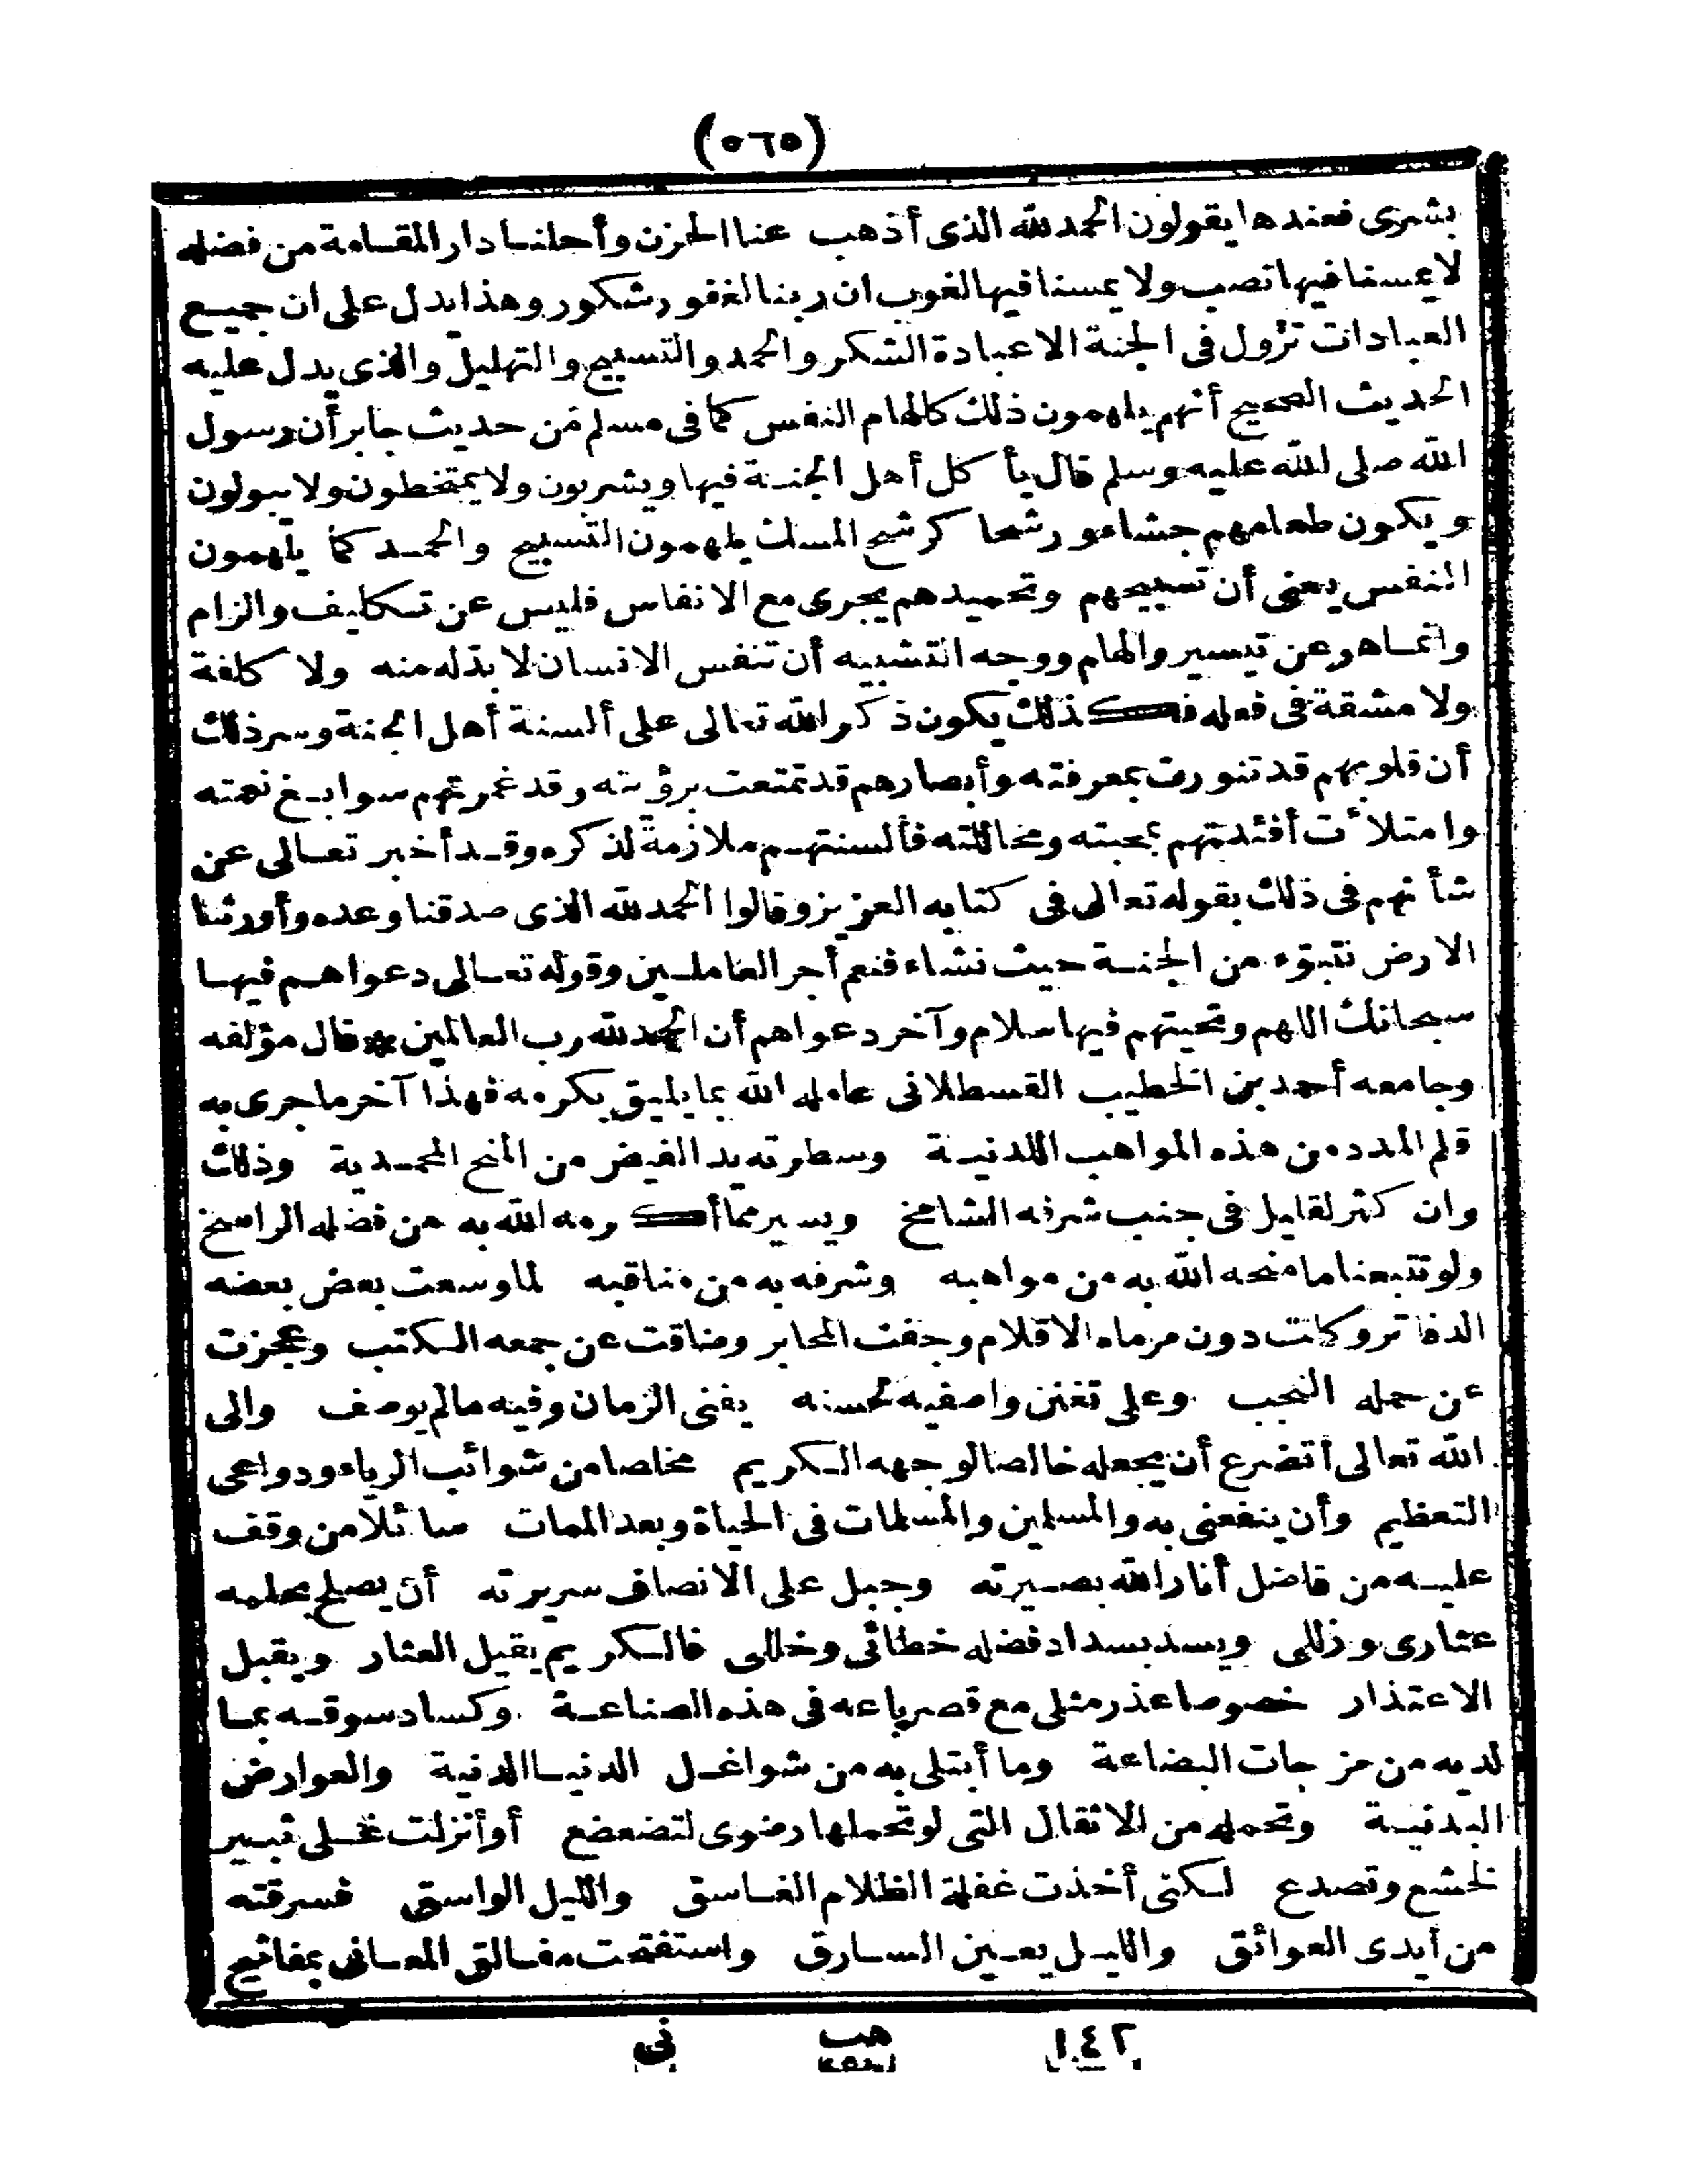 (٥٦٥)
بشرى فعندها يقولون الحمد لله الذى أذهب عنا الحزن وأحلنا دار المقامة من فضله
لا يمسنا فيها نصب ولا يمسنا فيها لغوب ان ربنا لغفور شكور وهذا يدل على ان جميع
العبادات تزول فى الجنة الا عبادة الشكر والحمد والتسبيح والتهليل والذى يدل عليه
الحديث الصحيح أنهم يلهمون ذلك كالهام النفس كما فى مسلم من حديث جابر أن رسول
الله صلى الله عليه وسلم قال يأكل أهل الجنة فيها ويشربون ولا يمتخطون ولا يبولون
ويكون طعامهم جشاء ورشحا كرشح المسك يلهمون التسبيح والحمد كما يلهمون
النفس يعنى أن تسبيحهم وتحميدهم يجرى مع الانفاس فليس عن تكليف والزام
وانما هو عن تيسير والهام ووجه التشبيه أن تنفس الانسان لا بد له منه ولا كلفة
ولا مشقة فى فعله فكذلك يكون ذكر الله تعالى على ألسنة أهل الجنة وسر ذلك
أن قلوبهم قد تنورت بمعرفته وأبصارهم قد تمتعت برؤيته وقد غمرتهم سوابغ نعمته
وامتلأت أفئدتهم بمحبته ومخاللته فألسنتهم ملازمة لذكره وقد أخبر تعالى عن
شأنهم فى ذلك بقوله تعالى فى كتابه العزيز وقالوا الحمد لله الذى صدقنا وعده وأورثنا
الارض نتبوّء من الجنة حيث نشاء فنعم أجر العاملين وقوله تعالى دعواهم فيها
سبحانك اللهم وتحيتهم فيها سلام وآخر دعواهم أن الحمد لله رب العالمين * قال مؤلفه
وجامعه أحمد بن الخطيب القسطلانى عامله الله بما يليق بكرمه فهذا آخر ما جرى به
قلم المدد من هذه المواهب اللدنية وسطرته يد الفيض من المنح المحمدية وذلك
وان كثر لقليل فى جنب شرفه الشامخ ويسير مما أكرمه الله به من فضله الراسخ
ولو تتبعنا ما منحه الله به من مواهبه وشرفه به من مناقبه لما وسعت بعض بعضه
الدفاتر وكلت دون مرماه الاقلام وجفت المحابر وضاقت عن جمعه الكتب وعجزت
عن حمله النجب وعلى تفنن واصفيه لحسنه يفنى الزمان وفيه ما لم يوصف والى
الله تعالى أتضرع أن يجعله خالصا لوجهه الكريم مخلصا من شوائب الرياء ودواعى
التعظيم وأن ينفعنى به والمسلمين والمسلمات فى الحياة وبعد الممات سائلا من وقف
عليه من فاضل أنار الله بصيرته وجبل على الانصاف سريرته أن يصلح بحلمه
عثارى وزللى ويسد بسداد فضله خطائى وخللى فالكريم يقيل العثار ويقبل
الاعتذار خصوصا عذر مثلى مع قصر باعه فى هذه الصناعة وكساد سوقه بما
لديه من مزجات البضاعة وما أبتلى به من شواغل الدنيا الدنية والعوارض
البدنية وتحمله من الاثقال التى لو تحملها رضوى لتضعضع أو أنزلت على ثبير
لخشع وتصدع لكنى أخذت غفلة الظلام الغاسق والليل الواسق فسرقته
من أيدى العوائق والليل يعين السارق واستفتحت مغالق المعانى بمفاتيح
١٤٢ هب نى